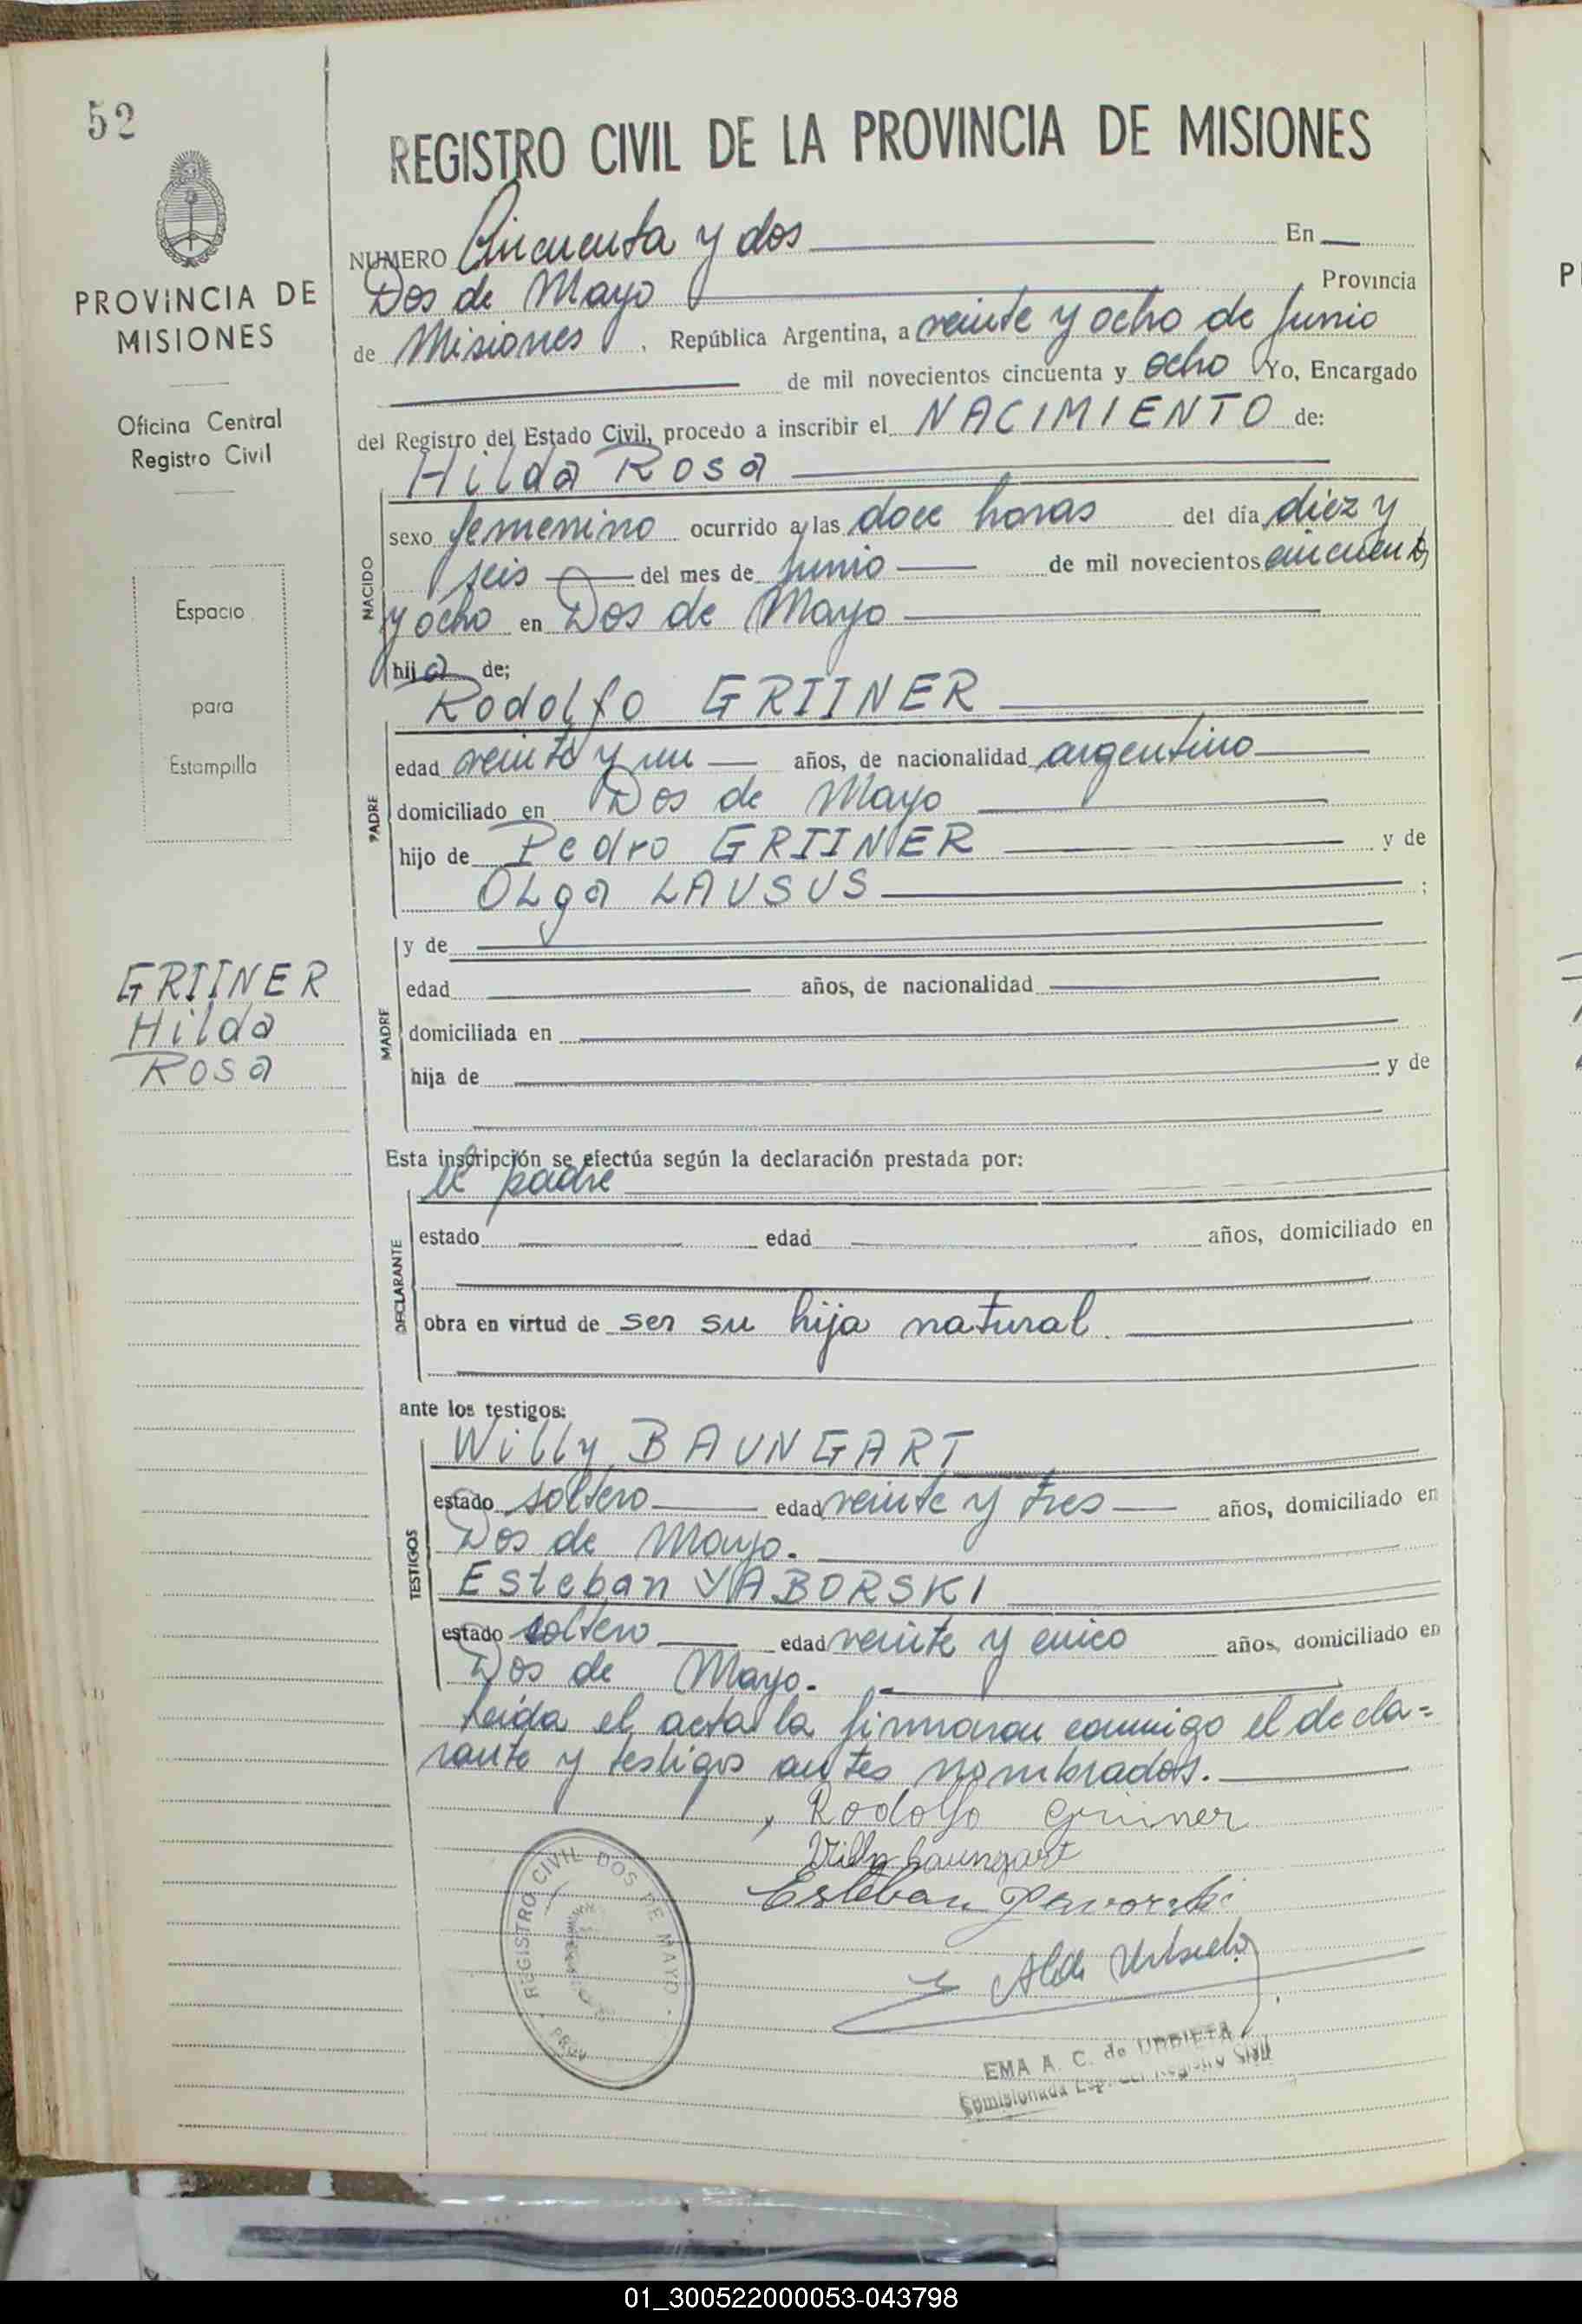 52
PROVINCIA DE
MISIONES
Oficina Central
Registro Civil
Espacio
para
Estampilla
GRIINER
Hilda
Rosa
REGISTRO CIVIL DE LA PROVINCIA DE MISIONES
NUMERO Cincuenta y dos En
Dos de Mayo Provincia
de Misiones, República Argentina, a veinte y ocho de Junio
de mil novecientos cincuenta y ocho Yo, Encargado
del Registro del Estado Civil, procedo a inscribir el NACIMIENTO de:
Hilda Rosa
NACIDO
sexo femenino ocurrido a las doce horas del día diez y
seis del mes de Junio de mil novecientos cincuenta
y ocho en Dos de Mayo
hija de;
Rodolfo GRIINER
PADRE
edad veinte y un años, de nacionalidad argentino
domiciliado en Dos de Mayo
hijo de Pedro GRIINER y de
Olga LAUSUS ;
MADRE
y de
edad años, de nacionalidad
domiciliada en
hija de y de
Esta inscripción se efectúa según la declaración prestada por:
el padre
DECLARANTE
estado edad años, domiciliado en
obra en virtud de ser su hija natural.
ante los testigos:
TESTIGOS
Willy BAUNGART
estado soltero edad veinte y tres años, domiciliado en
Dos de Mayo.
Esteban YABORSKI
estado soltero edad veinte y cinco años, domiciliado en
Dos de Mayo.
Leída el acta la firmaron conmigo el decla=
rante y testigos antes nombrados.
Rodolfo Griiner
Willy Baungart
Esteban
REGISTRO CIVIL DOS DE MAYO
EMA A. C. de URBIETA
Comisionada Esp. del Registro Civil
01_300522000053-043798